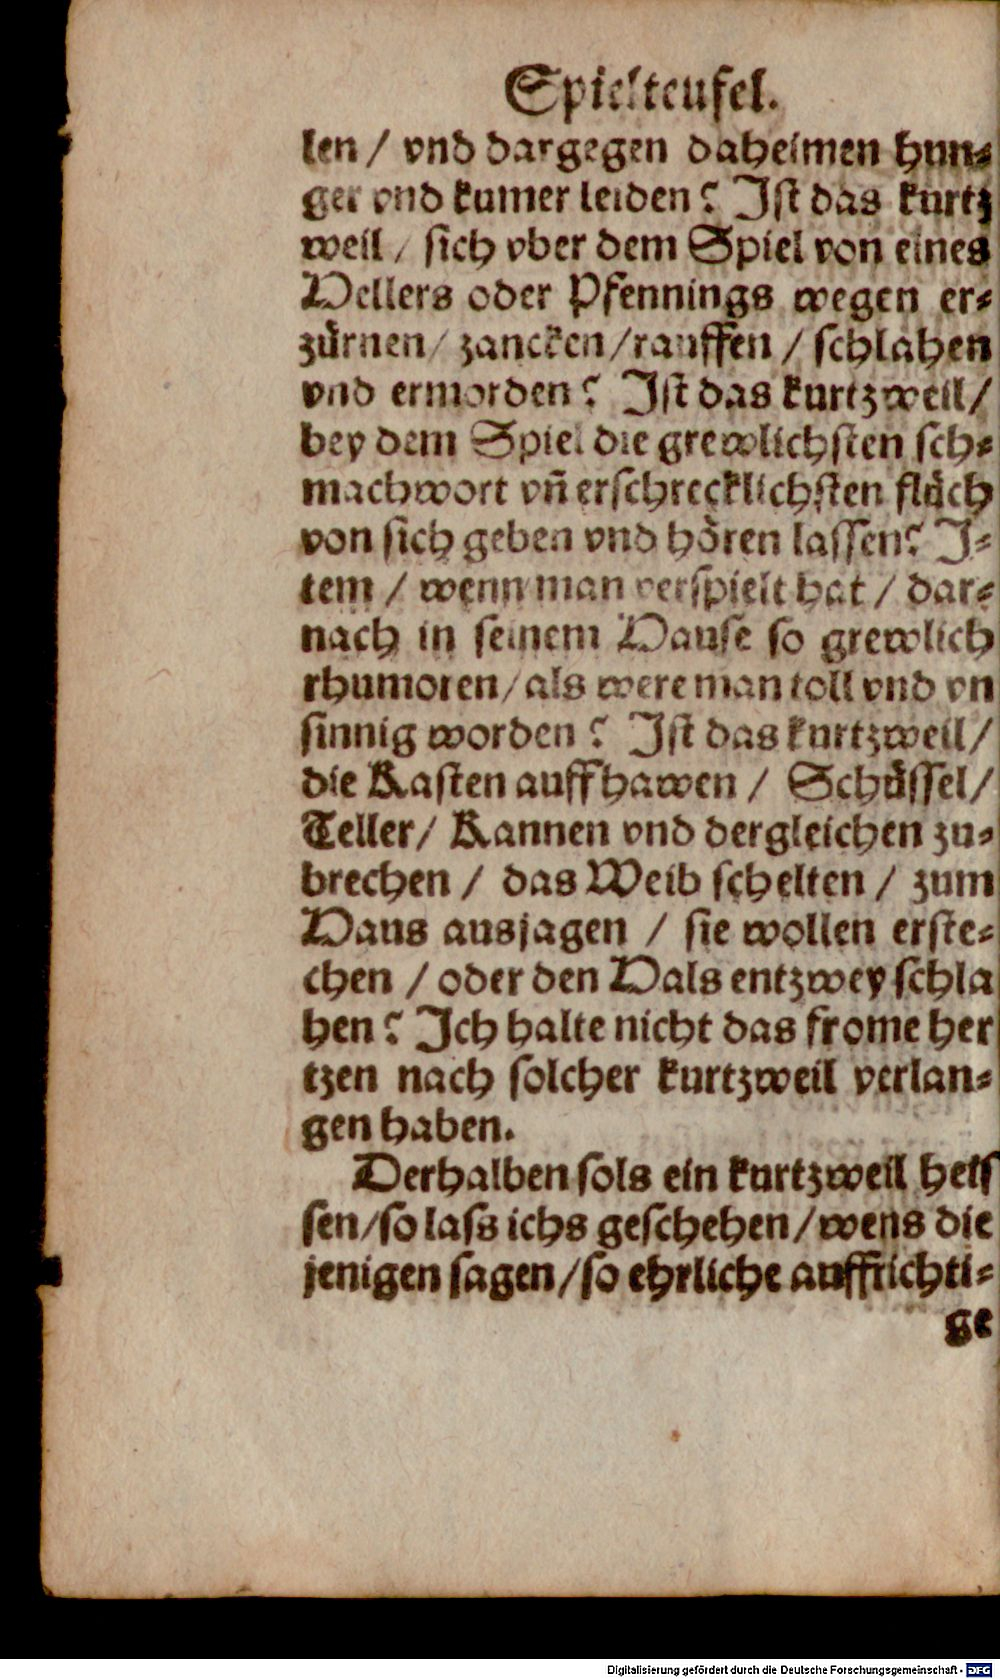 Spielteufel.
len / vnd dargegen daheimen hun⸗
ger vnd kumer leiden? Ist das kurtz
weil / sich vber dem Spiel von eines
Hellers oder Pfennings wegen er⸗
zürnen / zancken / rauffen / schlahen
vnd ermorden? Ist das kurtzweil /
bey dem Spiel die grewlichsten sch⸗
machwort vñ erschrecklichsten flüch
von sich geben vnd hören lassen? J⸗
tem / wenn man verspielt hat / dar⸗
nach in seinem Hause so grewlich
rhumoren / als were man toll vnd vn
sinnig worden? Ist das kurtzweil /
die Kasten auffhawen / Schüssel /
Teller / Kannen vnd dergleichen zu⸗
brechen / das Weib schelten / zum
Haus ausjagen / sie wollen erste⸗
chen / oder den Hals entzwey schla
hen? Ich halte nicht das frome her
tzen nach solcher kurtzweil verlan⸗
gen haben.
Derhalben sols ein kurtzweil heis
sen / so lass ichs geschehen / wens die
jenigen sagen / so ehrliche auffrichti⸗
ge
Digitalisierung gefördert durch die Deutsche Forschungsgemeinschaft - DFG